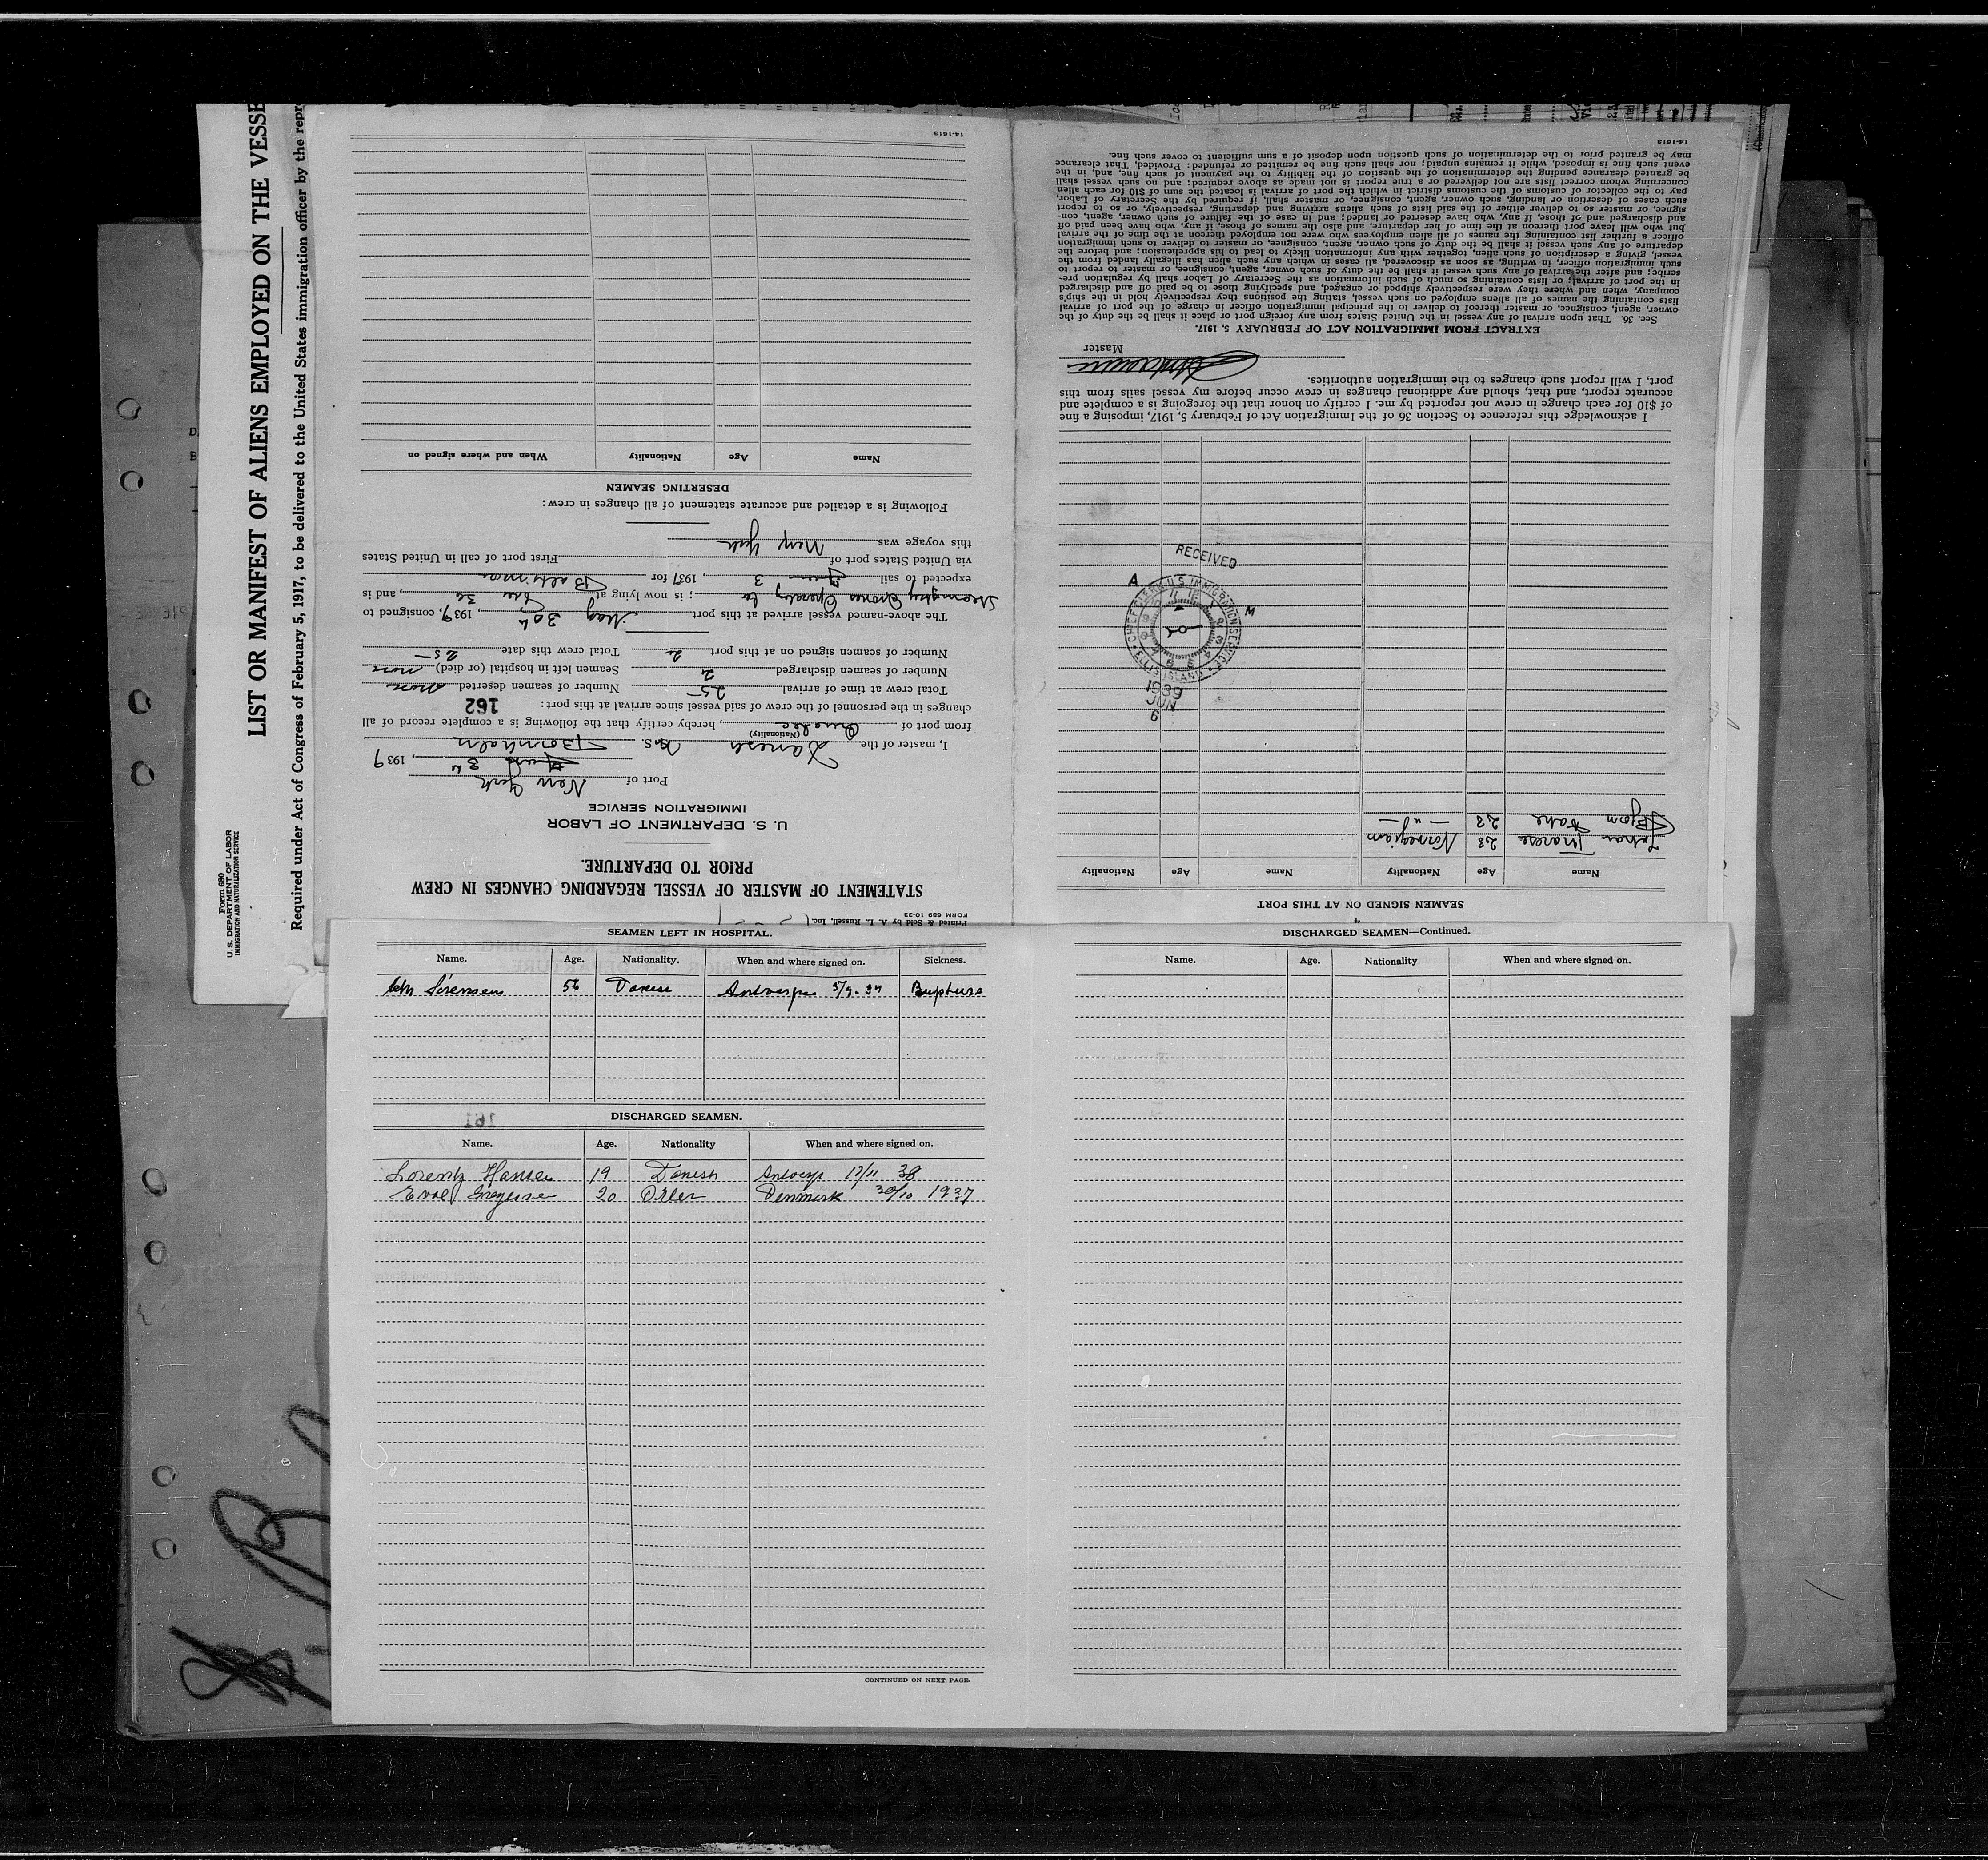 LIST OR MANIFEST OF ALIENS EMPLOYED ON THE VESSE
Required under Act of Congress of February 5, 1917, to be delivered to the United States immigration officer by the repr
Form 680
U. S. DEPARTMENT OF LABOR
IMMIGRATION AND NATURALIZATION SERVICE
Printed & Sold by A. L. Russell, Inc.
FORM 689 10-33
STATEMENT OF MASTER OF VESSEL REGARDING CHANGES IN CREW
PRIOR TO DEPARTURE.
U. S. DEPARTMENT OF LABOR
IMMIGRATION SERVICE
Port of New York
3, 1939
I, master of the Danesh M.S. Bornholm
(Nationality)
from port of, hereby certify that the following is a complete record of all
changes in the personnel of the crew of said vessel since arrival at this port: 162
Total crew at time of arrival 25 Number of seamen deserted none
Number of seamen discharged 2 Seamen left in hospital (or died) none
Number of seamen signed on at this port 2 Total crew this date 25
The above-named vessel arrived at this port May 30th, 1939, consigned to
; is now lying at Pier 36, and is
expected to sail June 3, 1939 for Baltimor
via United States port of First port of call in United States
this voyage was New York
Following is a detailed and accurate statement of all changes in crew:
DESERTING SEAMEN
Name Age Nationality When and where signed on
14-1613
SEAMEN SIGNED ON AT THIS PORT
Name Age Nationality Name Age Nationality
Johan 28 Norwegian
Bjorn 28 - " -
RECEIVED
A M
CHIEF CLERK U. S. IMMIGRATION SERVICE
ELLIS ISLAND
1939
JUN
6
I acknowledge this reference to Section 36 of the Immigration Act of February 5, 1917, imposing a fine
of $10 for each change in crew not reported by me. I certify on honor that the foregoing is a complete and
accurate report, and that, should any additional changes in crew occur before my vessel sails from this
port, I will report such changes to the immigration authorities.
Master
EXTRACT FROM IMMIGRATION ACT OF FEBRUARY 5, 1917.
Sec. 36. That upon arrival of any vessel in the United States from any foreign port or place it shall be the duty of the
owner, agent, consignee, or master thereof to deliver to the principal immigration officer in charge of the port of arrival
lists containing the names of all aliens employed on such vessel, stating the positions they respectively hold in the ship's
company, when and where they were respectively shipped or engaged, and specifying those to be paid off and discharged
in the port of arrival; or lists containing so much of such information as the Secretary of Labor shall by regulation pre-
scribe; and after the arrival of any such vessel it shall be the duty of such owner, agent, consignee, or master to report to
such immigration officer, in writing, as soon as discovered, all cases in which any such alien has illegally landed from the
vessel, giving a description of such alien, together with any information likely to lead to his apprehension; and before the
departure of any such vessel it shall be the duty of such owner, agent, consignee, or master to deliver to such immigration
officer a further list containing the names of all alien employees who were not employed thereon at the time of the arrival
but who will leave port thereon at the time of her departure, and also the names of those, if any, who have been paid off
and discharged and of those, if any, who have deserted or landed; and in case of the failure of such owner, agent, con-
signee, or master so to deliver either of the said lists of such aliens arriving and departing, respectively, or so to report
such cases of desertion or landing, such owner, agent, consignee, or master shall, if required by the Secretary of Labor,
pay to the collector of customs of the customs district in which the port of arrival is located the sum of $10 for each alien
concerning whom correct lists are not delivered or a true report is not made as above required; and no such vessel shall
be granted clearance pending the determination of the question of the liability to the payment of such fine, and, in the
event such fine is imposed, while it remains unpaid; nor shall such fine be remitted or refunded: Provided, That clearance
may be granted prior to the determination of such question upon deposit of a sum sufficient to cover such fine.
14-1613
SEAMEN LEFT IN HOSPITAL.
Name. Age. Nationality. When and where signed on. Sickness.
Chr Sörensen 56 Danish Antwerpen Rupture
161
DISCHARGED SEAMEN.
Name. Age. Nationality When and where signed on.
Lorentz Hansen 19 Danish Antwerp 38
20 Denmark 30/10 1937
CONTINUED ON NEXT PAGE.
DISCHARGED SEAMEN—Continued.
Name. Age. Nationality When and where signed on.